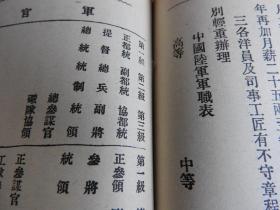 年再加月薪二十五
三各洋員及司事工匠有不守章程
別經重辦理
中國陸軍軍職表
高等
中等
軍
官
第一級 第二級 第三級
正都統 副都統 協都統
提督 總兵 副將
總統 統制 統領
總參謀官
礮隊協領
第一級
正參領
參將
統領
正參謀官